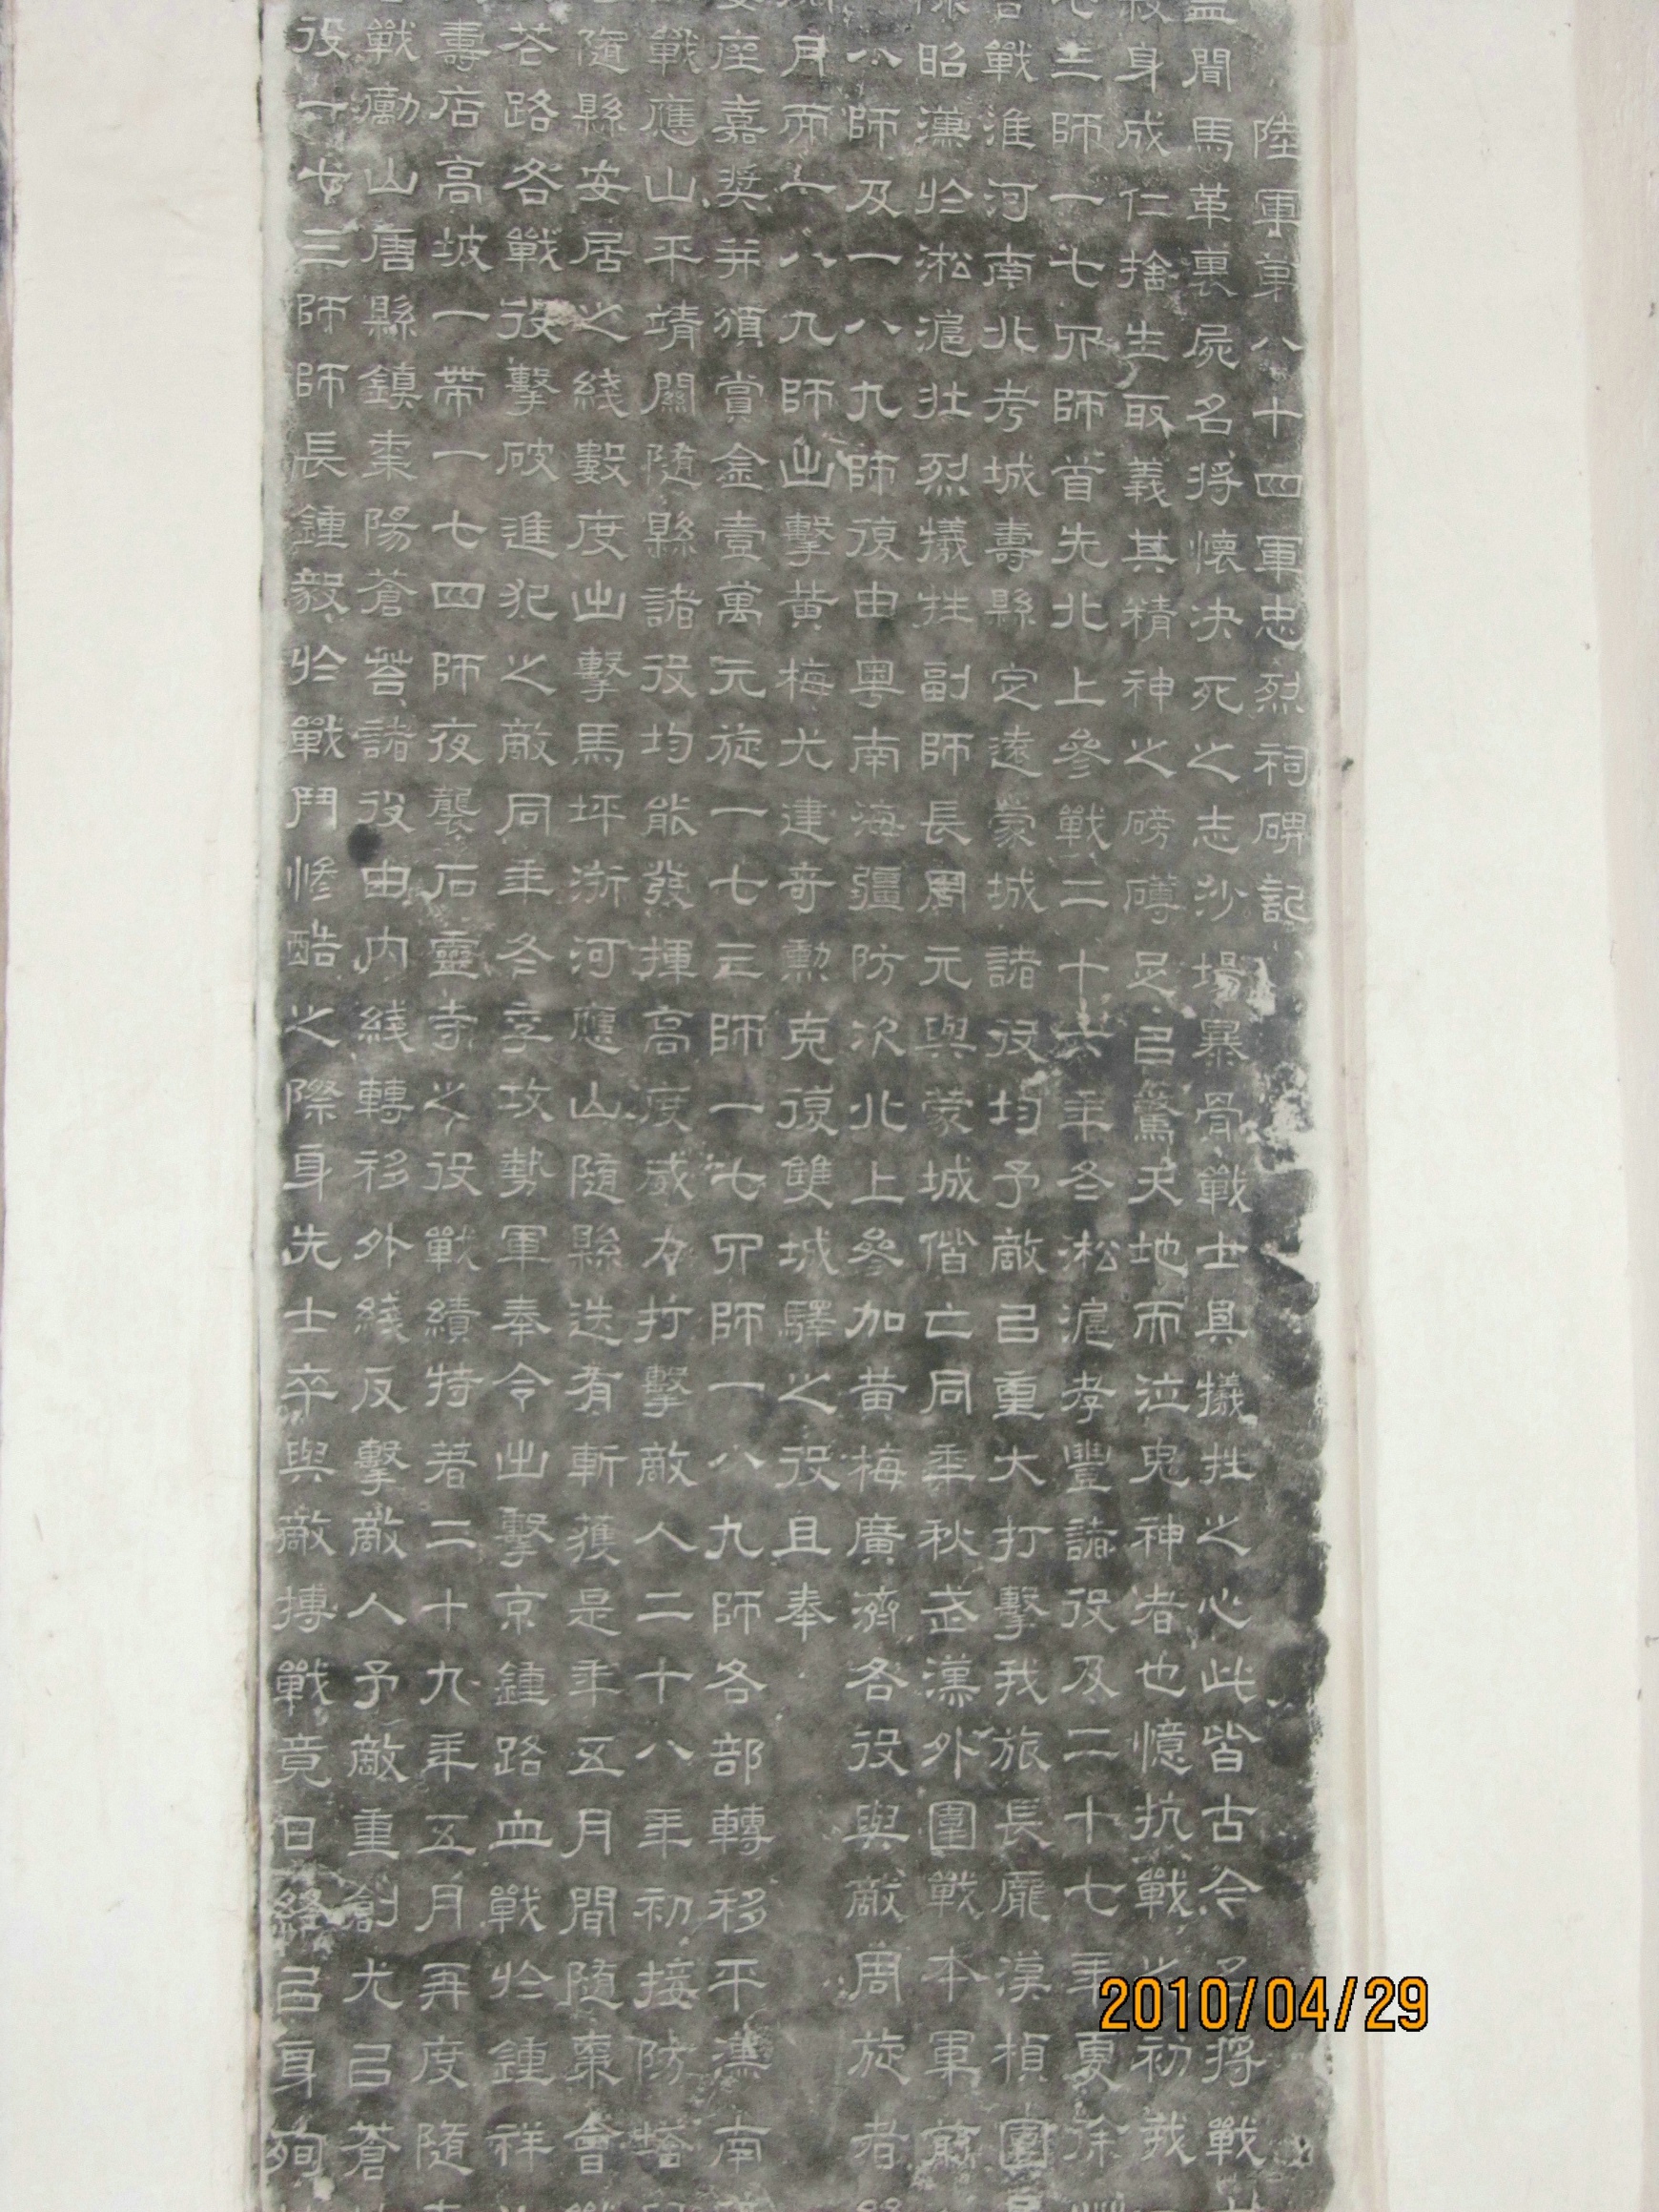 陸軍第八十四軍忠烈祠碑記
間馬革裹屍名將懷決死之志沙場暴骨戰士具犧牲之心此皆古今名將戰
身成仁捨生取義其精神之磅礡足以驚天地而泣鬼神者也憶抗戰之初我
三師一七六師首先北上參戰二十六年冬淞滬孝豐諸役及二十七年夏徐
戰淮河南北考城壽縣定遠蒙城諸役均予敵以重大打擊我旅長龐漢楨
昭漢於淞滬壯烈犧牲副師長周元與蒙城偕亡同年秋武漢外圍戰本軍
八師及一八九師復由粵南海疆防次北上參加黃梅廣濟各役與敵周旋者
月而一八九師出擊黃梅尤建奇勳克復雙城驛之役且奉
座嘉獎并頒賞金壹萬元旋一七三師一七六師一八九師各部轉移平漢南
戰應山平靖關隨縣諸役均能發揮高度威力打擊敵人二十八年初接防塔
隨縣安居之綫數度出擊馬坪淅河應山隨縣迭有斬獲是年五月間隨棗會
路各戰役擊破進犯之敵同年冬季攻勢軍奉令出擊京鍾路血戰於鍾祥
壽店高坡一帶一七四師夜襲石靈寺之役戰績特著二十九年五月再度隨
戰勵山唐縣鎮棗陽蒼苔諸役由內綫轉移外綫反擊敵人予敵重創尤以蒼
役一七三師師長鍾毅於戰鬥慘酷之際身先士卒與敵搏戰竟日終以身殉
2010/04/29